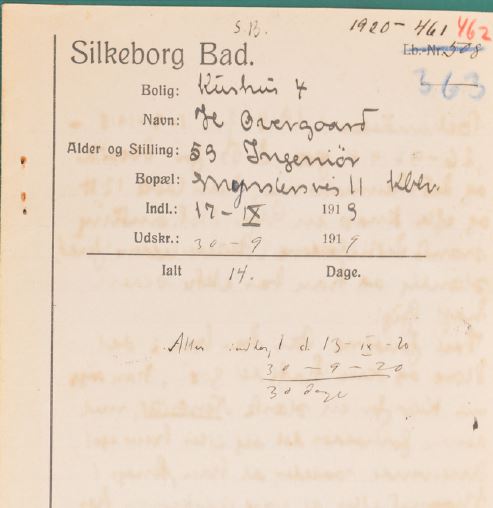 S.B. 1920-461 462
Silkeborg Bad. Lb.-Nr. 508
363
Bolig: Kurhus 4
Navn: H Overgaard
Alder og Stilling: 53 Ingeniør
Bopæl: Mynstersvej 11 Kbhv.
Indl.: 17-IX 1919
Udskr.: 30-9 1919
Ialt 14. Dage.
Atter indlagt d. 13-IX-20
30-9-20
30 dage